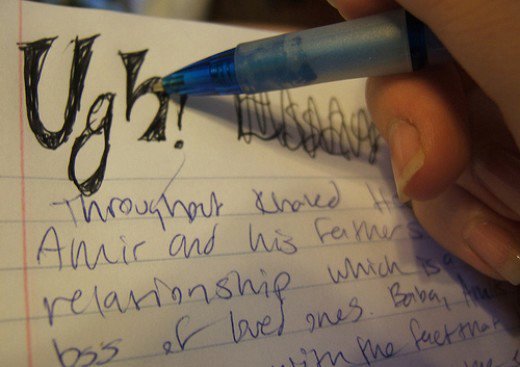 Ugh!
Throughout Khaled
Amir and his father's
relationship which is a
loss of loved ones. Baba,
with the fact that